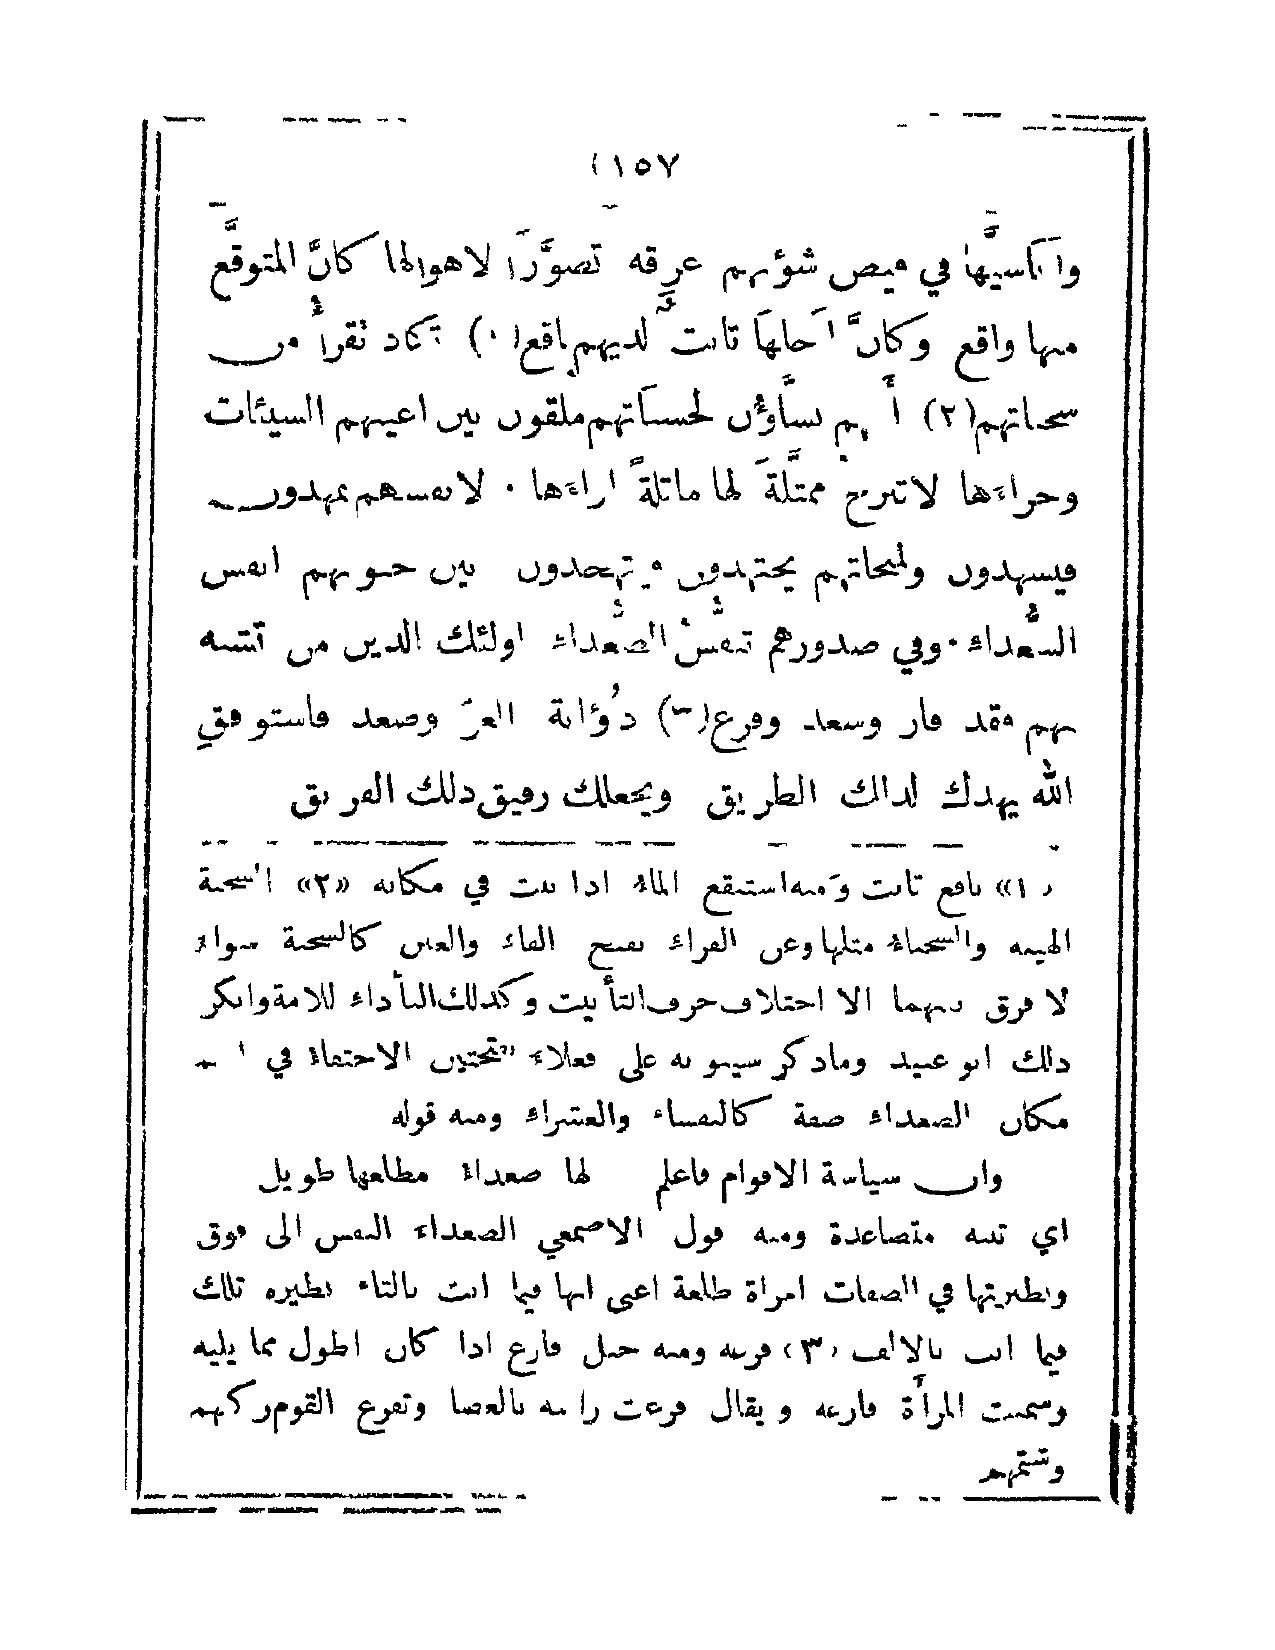 (١٥٧
في فيض شؤنهم غرقه تصوُّرًا لاهوالها كانَّ المتوقَّع
منها واقع وكانَّ ثابت لديهم ناقع(١) تكاد تقرأ من
سحناتهم(٢) نساؤن لحسناتهم ملقون بين اعينهم السيئات
وجزاءها لا تبرح ممثلةً لها ماثلةً ازاءها · لانفسهم يمهدون
فيسهدون ولمنجاتهم يجتهدون فيتهجدون بين جنوبهم انفس
السُّعداء · وفي صدورهم تنفسُ الصُّعداء اولئك الذين من تشبه
بهم فقد فاز وسعد وفرع(٣) ذُؤابة العزّ وصعد فاستوفق
الله يهدك لذاك الطريق ويجعلك رفيق ذلك الفريق
«١» ناقع ثابت ومنه استنقع الماءُ اذا ثبت في مكانه «٢» السحنة
الهيئه والسحناء مثلها وعن الفراء بفتح الفاء والعين كالسحنة سواء
لا فرق بينهما الا اختلاف حرف التأنيث وكذلك الثأداء للامة وانكر
ذلك ابو عبيد وما ذكر سيبويه على فعلاء بفتحتين الاختفاء في
مكان الصعداء صفة كالنفساء والعشراء ومنه قوله
وان سياسة الاقوام فاعلم لها صعداءُ مطلعها طويل
اي ثنيه متصاعدة ومنه قول الاصمعي الصعداء النفس الى فوق
ونظيرتها في الصفات امراة طلعة اعني انها فيما انث بالتاء نظيره تلك
فيما انث بالالف (٣) فرعه ومنه جبل فارع اذا كان اطول مما يليه
وسميت المرأة فارعه و يقال فرعت راسه بالعصا وتفرع القوم ركبهم
وشتمهم